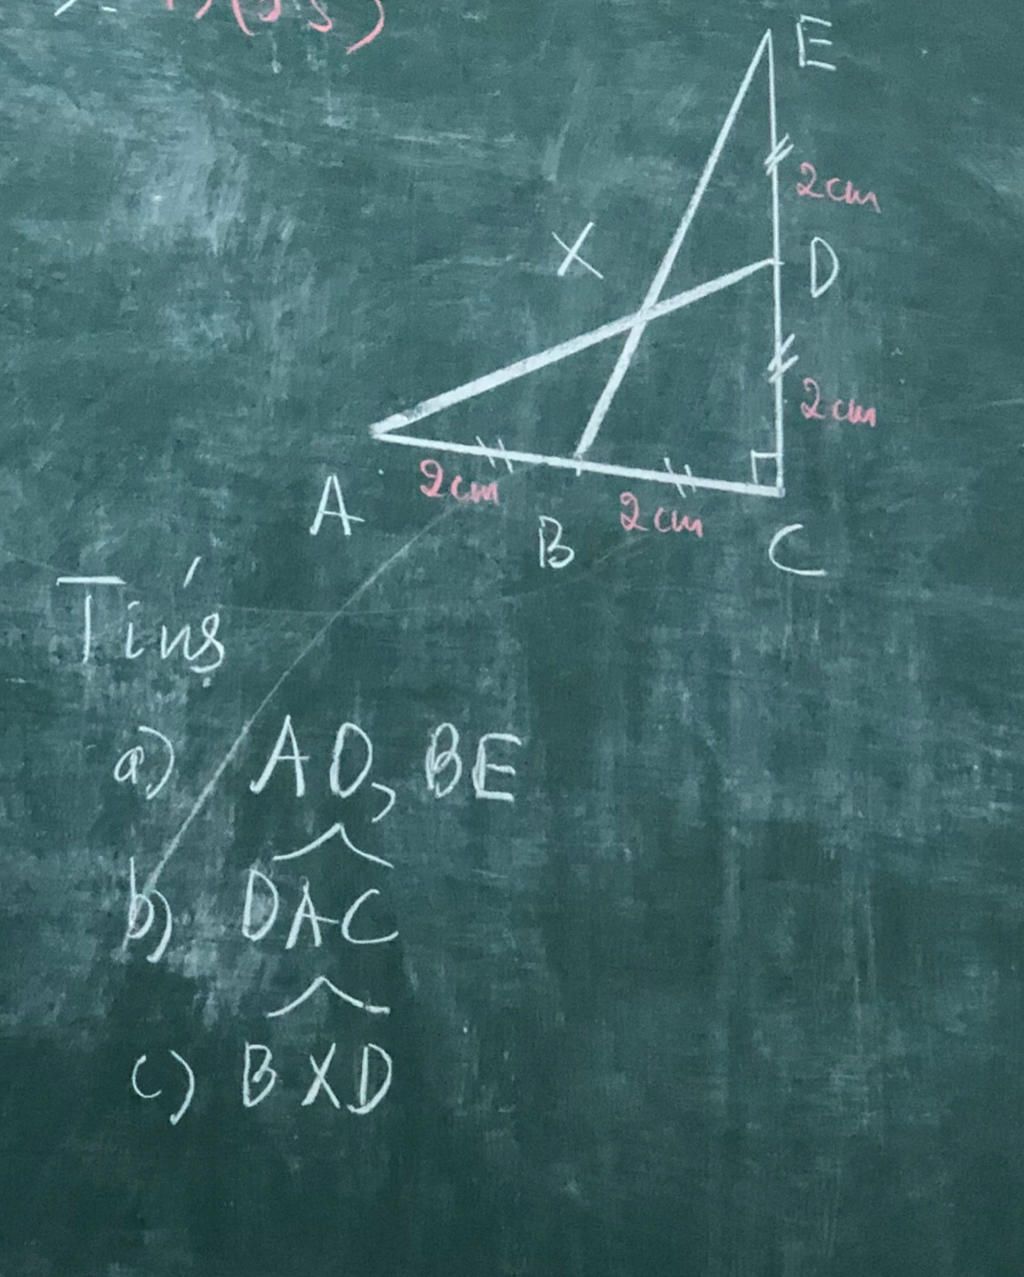 E
2cm
X
D
2cm
2cm
A
2cm
B
C
Tính
a) AD, BE
b) DAC
c) BXD